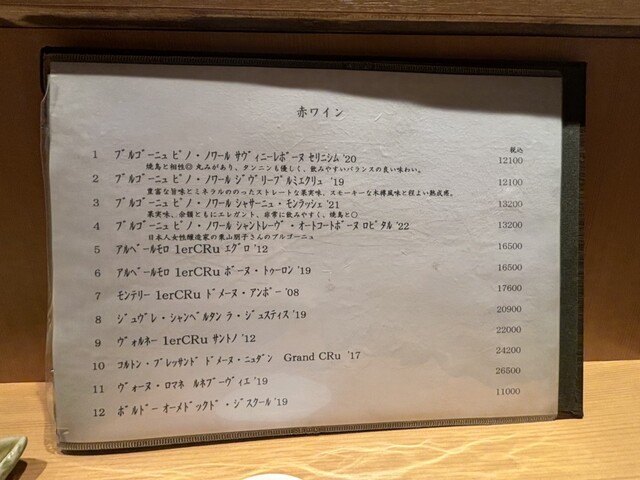 赤ワイン
税込
1 ﾌﾞﾙｺﾞｰﾆｭ ﾋﾟﾉ・ﾉﾜｰﾙ ｻｳﾞｨﾆｰﾚﾎﾞｰﾇ ｾﾘﾆｼﾑ '20 12100
焼鳥と相性◎ 丸みがあり、タンニンも優しく、飲みやすいバランスの良い味わい。
2 ﾌﾞﾙｺﾞｰﾆｭ ﾋﾟﾉ・ﾉﾜｰﾙ ｼﾞｳﾞﾘｰﾌﾟﾙﾐｴｸﾘｭ '19 12100
豊富な旨味とミネラルののったストレートな果実味、スモーキーな木樽風味と程よい熟成感。
3 ﾌﾞﾙｺﾞｰﾆｭ ﾋﾟﾉ・ﾉﾜｰﾙ ｼｬｻｰﾆｭ・ﾓﾝﾗｯｼｪ '21 13200
果実味、余韻ともにエレガント、非常に飲みやすく、焼鳥と〇
4 ﾌﾞﾙｺﾞｰﾆｭ ﾋﾟﾉ・ﾉﾜｰﾙ ｼｬﾝﾄﾚｰｳﾞ・ｵｰﾄｺｰﾄﾎﾞｰﾇ ﾛﾋﾟﾀﾙ '22 13200
日本人女性醸造家の栗山朋子さんのブルゴーニュ
5 ｱﾙﾍﾞｰﾙﾓﾛ 1erCRu ｴｸﾞﾛ '12 16500
6 ｱﾙﾍﾞｰﾙﾓﾛ 1erCRu ﾎﾞｰﾇ・ﾄｩｰﾛﾝ '19 16500
7 ﾓﾝﾃﾘｰ 1erCRu ﾄﾞﾒｰﾇ・ｱﾝﾎﾞｰ '08 17600
8 ｼﾞｭｳﾞﾚ・ｼｬﾝﾍﾞﾙﾀﾝ ﾗ・ｼﾞｭｽﾃｨｽ '19 20900
9 ｳﾞｫﾙﾈｰ 1erCRu ｻﾝﾄﾉ '12 22000
10 ｺﾙﾄﾝ・ﾌﾞﾚｯｻﾝﾄﾞ ﾄﾞﾒｰﾇ・ﾆｭﾀﾞﾝ Grand CRu '17 24200
11 ｳﾞｫｰﾇ・ﾛﾏﾈ ﾙﾈﾌﾞｰｳﾞｨｴ '19 26500
12 ﾎﾞﾙﾄﾞｰ ｵｰﾒﾄﾞｯｸﾄﾞ・ｼﾞｽｸｰﾙ '19 11000